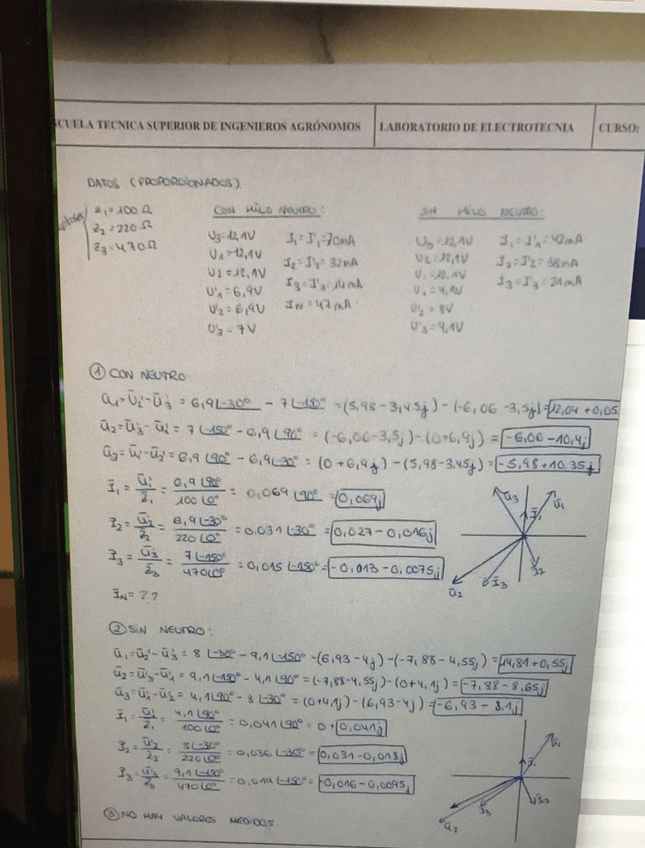 ESCUELA TECNICA SUPERIOR DE INGENIEROS AGRÓNOMOS
LABORATORIO DE ELECTROTECNIA
CURSO:
DATOS (PROPORCIONADOS)
Z₁=100Ω
Z₂=220Ω
Z₃=470Ω
CON HILO NEUTRO:
U₃=12,1V I₁=I'₁=70mA
U₁=12,1V
U₂=12,1V I₂=I'₂=32mA
U'₁=6,9V I₃=I'₃=14mA
U'₂=6,9V IN=47mA
U'₃=7V
SIN HILO NEUTRO:
=12,1V I₁=I'₁=42mA
=12,1V I₂=I'₂=38mA
=12,1V I₃=I'₃=21mA
=4,1V
U'₂=8V
U'₃=9,1V
① CON NEUTRO
Ū₁=Ū'₂-Ū'₃ = 6,9∠-30° - 7∠-150° =(5,98-3,45j)-(-6,06-3,5j)=12,04+0,05
Ū₂=Ū'₃-Ū'₁ = 7∠-150° - 6,9∠90° = (-6,06-3,5j)-(0+6,9j) = -6,06-10,4j
Ū₃=Ū'₁-Ū'₂ = 6,9∠90° - 6,9∠-30° = (0+6,9j)-(5,98-3,45j)=-5,98+10,35j
Ī₁ = Ū'₁/Z̄₁ = 6,9∠90°/100∠0° = 0,069∠90° = 0,069j
Ī₂ = Ū'₂/Z̄₂ = 6,9∠-30°/220∠0° = 0,031∠-30° = 0,027-0,016j
Ī₃ = Ū'₃/Z̄₃ = 7∠-150°/470∠0° = 0,015∠-150° = -0,013-0,0075j
ĪN = ??
ū₃
ū₁
Ī₁
Ī₂
Ī₃
ū₂
② SIN NEUTRO:
Ū₁=Ū'₂-Ū'₃ = 8∠-30° - 9,1∠-150° =(6,93-4j)-(-7,88-4,55j)=14,81+0,55j
Ū₂=Ū'₃-Ū'₁ = 9,1∠-150° - 4,1∠90° =(-7,88-4,55j)-(0+4,1j)=-7,88-8,65j
Ū₃=Ū'₁-Ū'₂ = 4,1∠90° - 8∠-30° = (0+4,1j)-(6,93-4j)=-6,93-8,1j
Ī₁ = Ū'₁/Z̄₁ = 4,1∠90°/100∠0° = 0,041∠90° = 0+0,041j
Ī₂ = Ū'₂/Z̄₂ = 8∠-30°/220∠0° = 0,036∠-30° = 0,031-0,018j
Ī₃ = Ū'₃/Z̄₃ = 9,1∠-150°/470∠0° = 0,019∠-150° = -0,016-0,0095j
ū₁
Ī₁
Ī₂
Ī₃
ū₂
③ NO HAY VALORES MEDIDOS